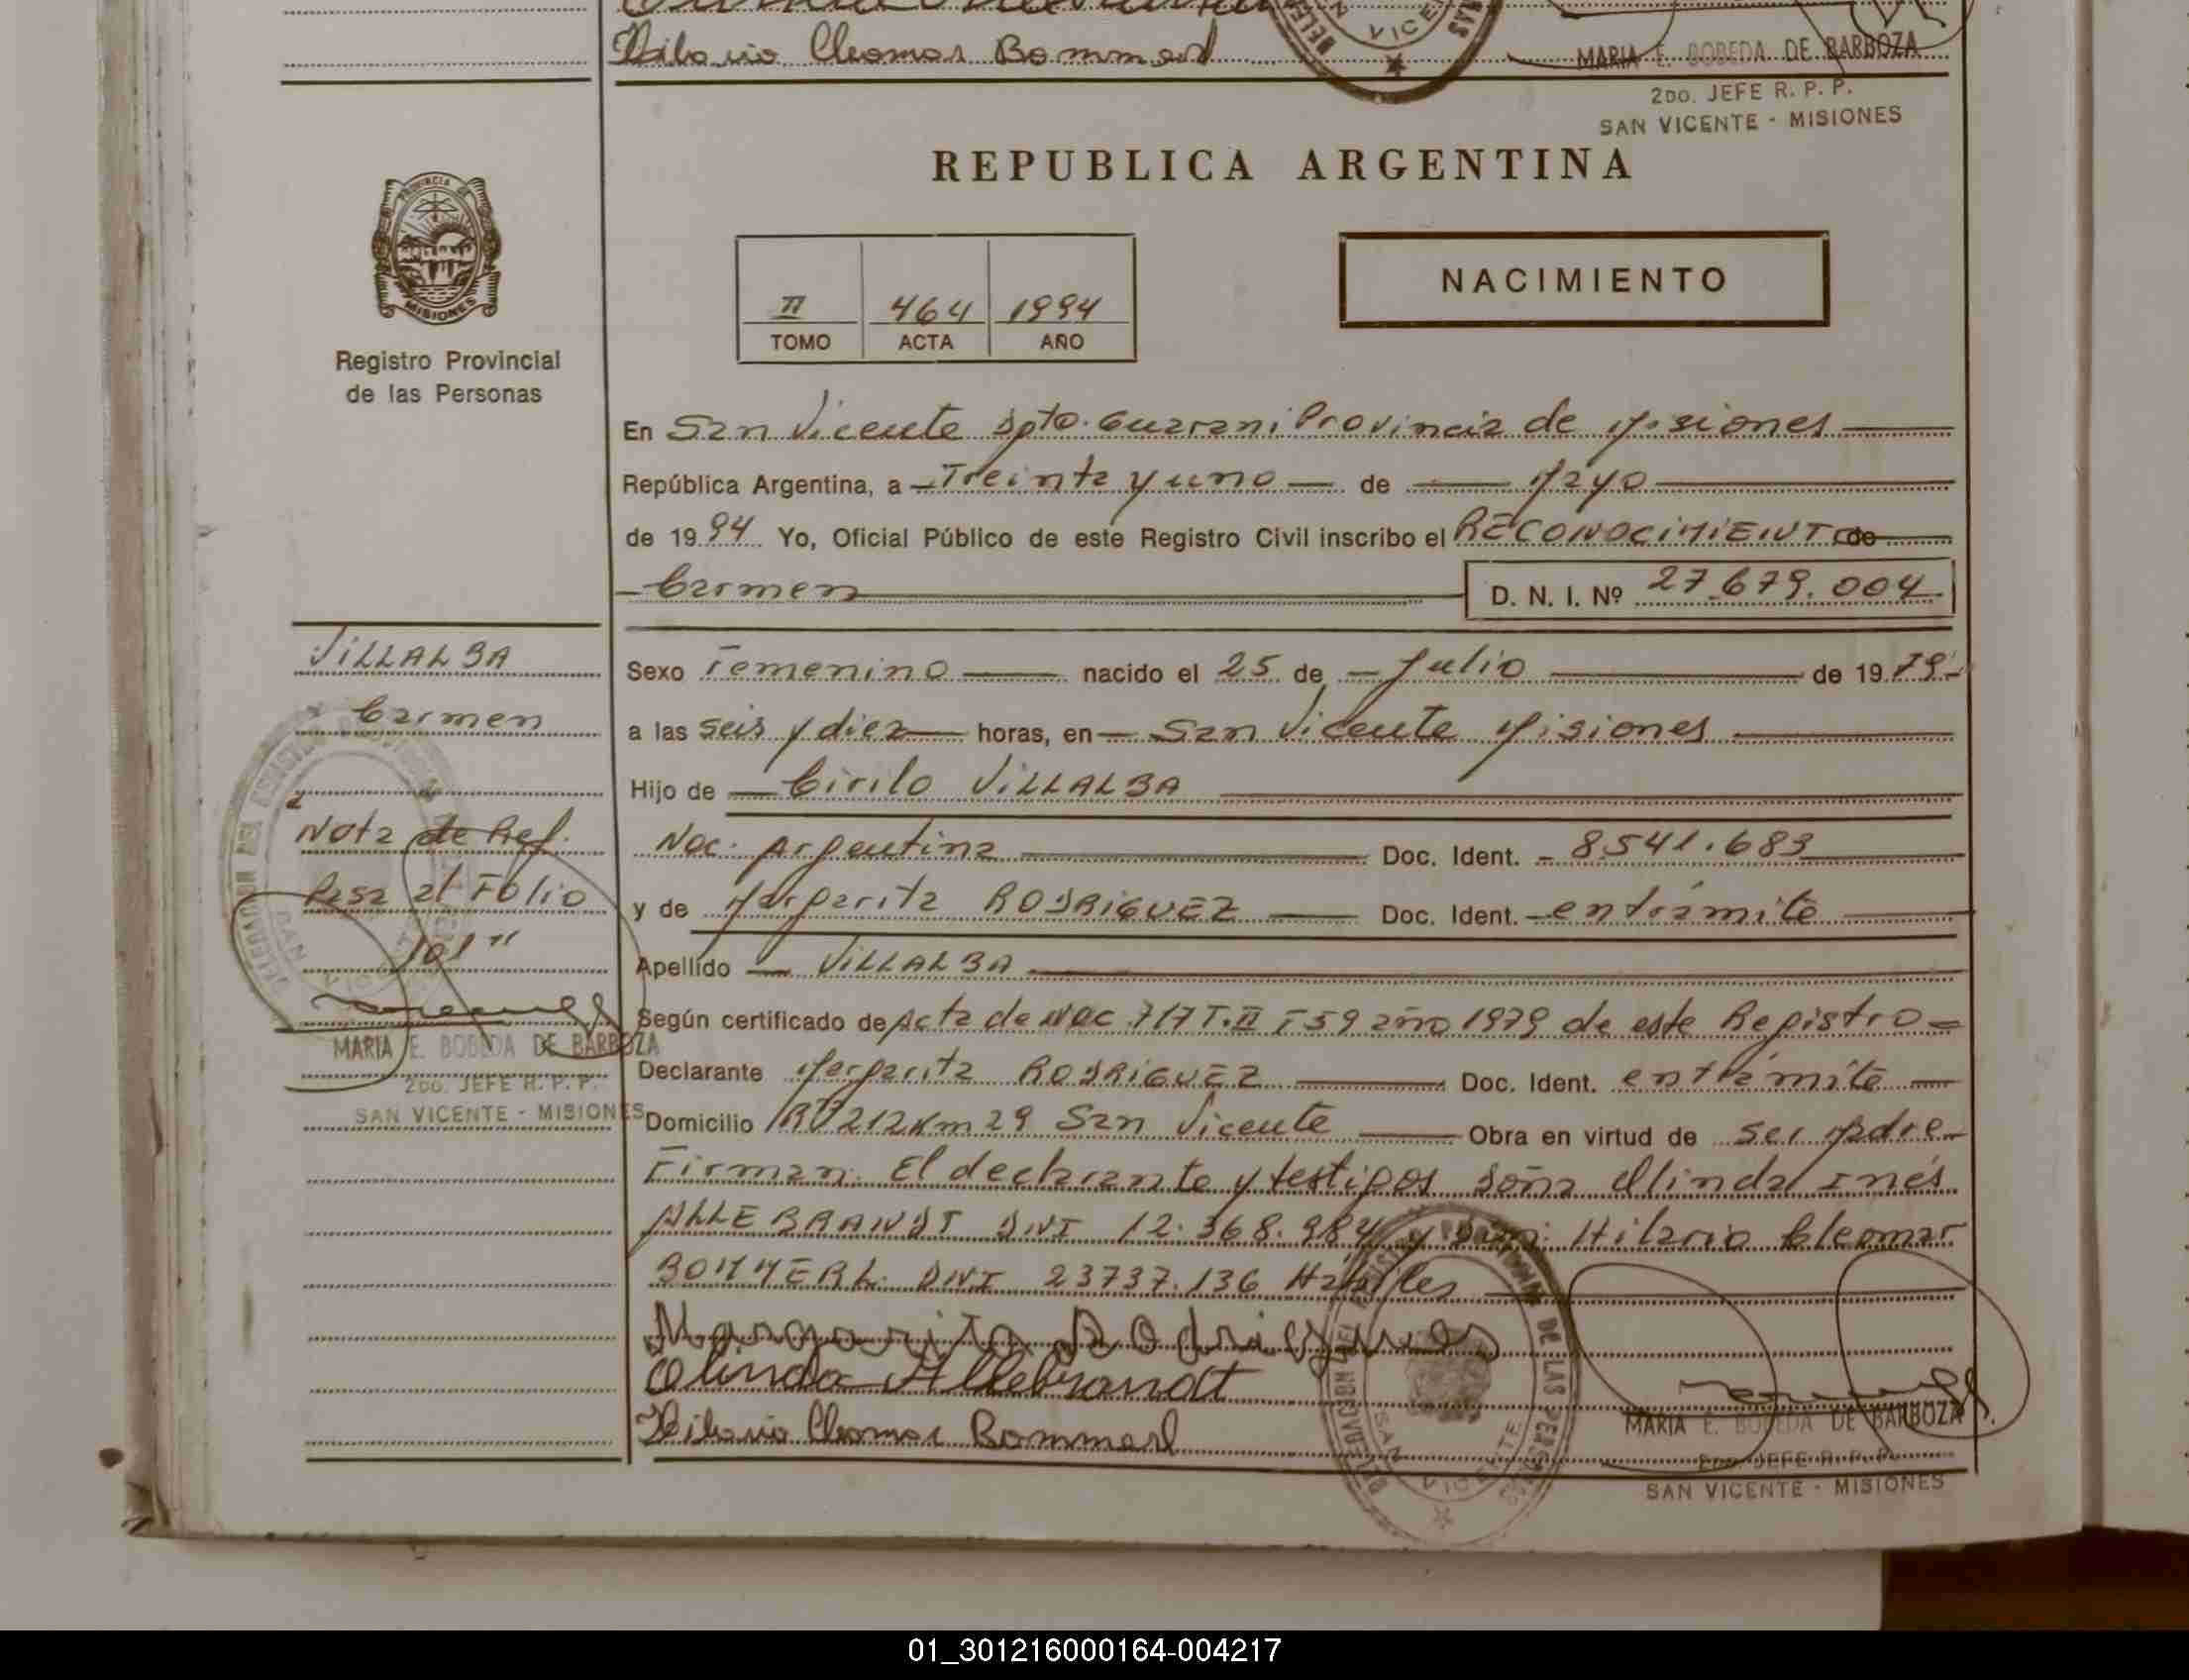 Hilario Cleomar Bommerl
MARIA E. BOBEDA DE BARBOZA
2DO. JEFE R. P. P.
SAN VICENTE - MISIONES
REPUBLICA ARGENTINA
PROVINCIA DE
MISIONES
Registro Provincial
de las Personas
II 464 1994
TOMO ACTA AÑO
NACIMIENTO
En San Vicente Dpto. Guarani Provincia de Misiones
República Argentina, a Treinta y uno de Mayo
de 1994 Yo, Oficial Público de este Registro Civil inscribo el RECONOCIMIENTO de
Carmen D. N. I. Nº 27.679.004
Sexo Femenino nacido el 25 de Julio de 1979
a las seis y diez horas, en San Vicente Misiones
Hijo de Cirilo VILLALBA
Nac. Argentina Doc. Ident. 8.541.683
y de Margarita RODRIGUEZ Doc. Ident. en trámite
Apellido VILLALBA
Según certificado de Acta de Nac 717 T.II F59 año 1979 de este Registro
Declarante Margarita RODRIGUEZ Doc. Ident. en trámite
Domicilio RP212Km29 San Vicente Obra en virtud de ser Madre
Firman. El declarante y testigos Doña Olinda Inés
ALLEBRANDT DNI 12.368.984 y Don: Hilario Cleomar
BOMMERL. DNI 23737.136 Hábiles
Margarita Rodrigues
Olinda Allebrandt
Hilario Cleomar Bommerl
VILLALBA
Carmen
Nota de Ref.
Pasa al Folio
101"
MARIA E. BOBEDA DE BARBOZA
2DO. JEFE R. P. P.
SAN VICENTE - MISIONES
DELEGACION DEL REGISTRO PROVINCIAL DE LAS PERSONAS
SAN VICENTE
MARIA E. BOBEDA DE BARBOZA
2DO. JEFE R. P. P.
SAN VICENTE - MISIONES
01_301216000164-004217